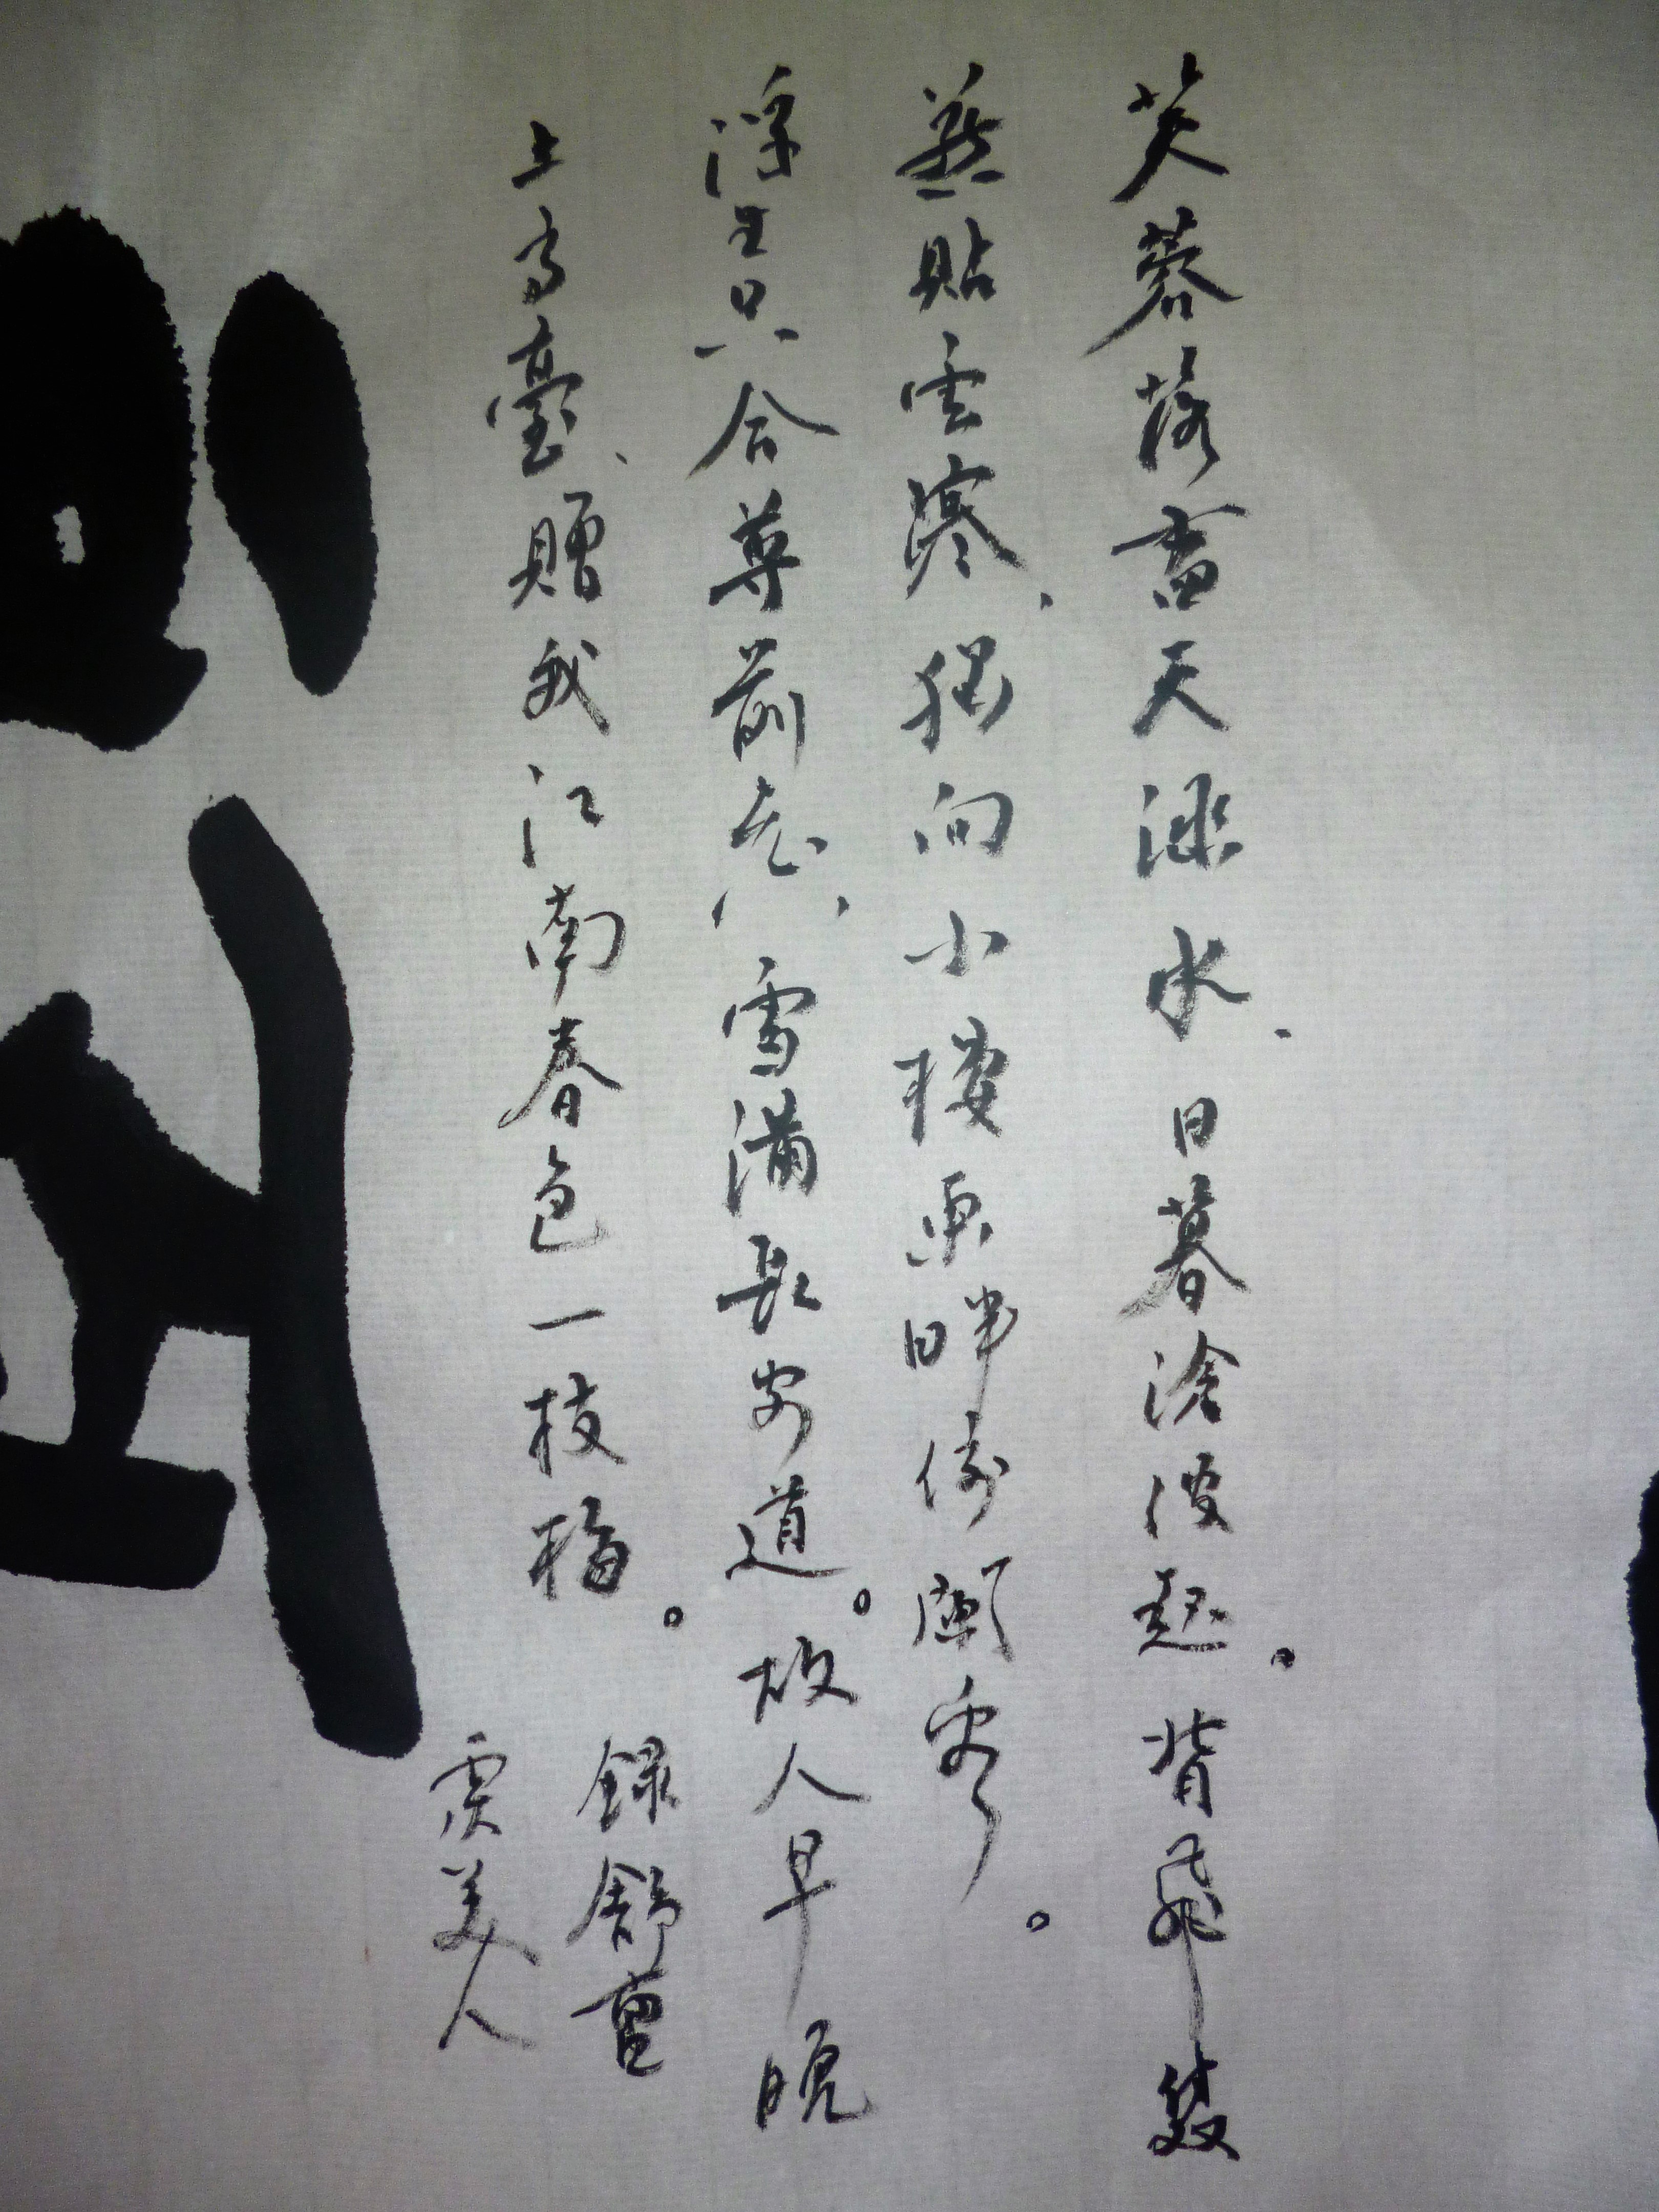 芙蓉落盡天涵水、日暮滄波起。背飛雙
燕貼雲寒、獨向小樓東畔倚闌看。
浮生只合尊前老、雪滿長安道。故人早晚
上高臺、贈我江南春色一枝梅。
錄舒亶
虞美人